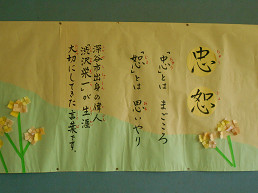 忠恕
「忠」とは まごころ
「恕」とは 思いやり
深谷市出身の偉人
渋沢栄一が生涯
大切にしてきた言葉です。